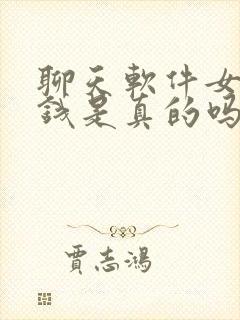 聊天軟件女
錢是真的嗎
賈志鴻